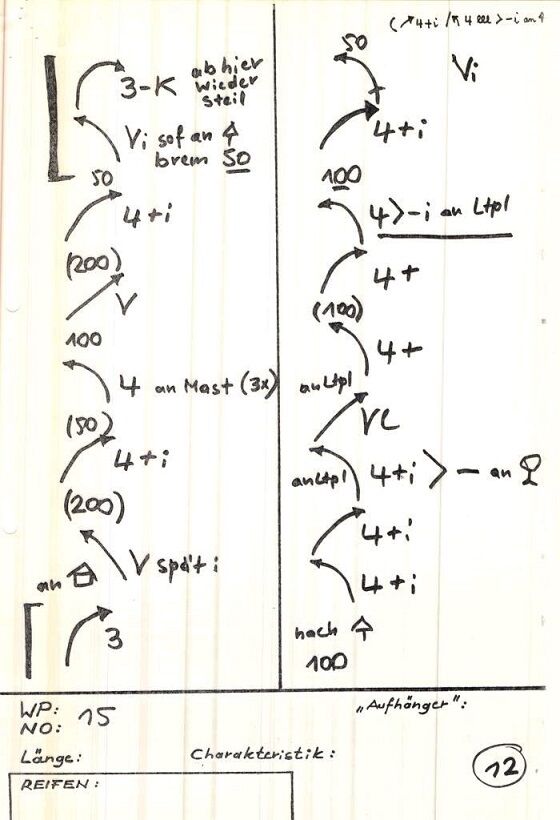 3-K ab hier
wieder
steil
Vi sof an
brem 50
50
4+i
(200)
V
100
4 an Mast (3x)
(50)
4+i
(200)
V spät i
an
3
50
Vi
+
4+i
100
4>-i an Ltpl
4+
(100)
4+
an Ltpl
an Ltpl
4+i > - an
4+i
4+i
nach
100
WP:
NO: 15
"Aufhänger":
Länge:
Charakteristik:
12
REIFEN: